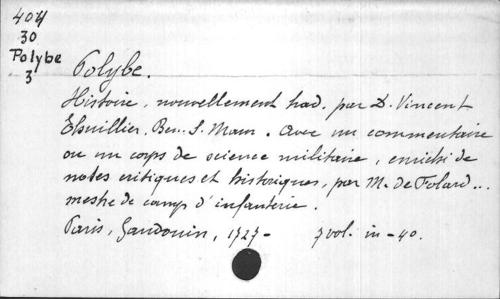 404
30
Polybe
3
Polybe.
Histoire, nouvellement trad. par D. Vincent
Thuillier, Ben. S. Maur. Avec un commentaire
ou un corps de science militaire, enrichi de
notes critiques et historiques, par M. de Folard...
mestre de camp d'infanterie.
Paris, Gandouin, 1727- 7 vol. in-4o.